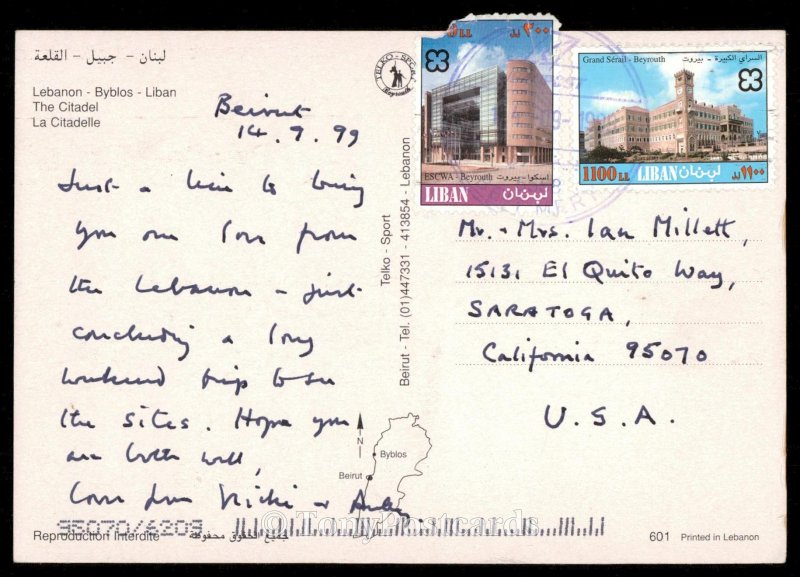 لبنان - جبيل - القلعة
Lebanon - Byblos - Liban
The Citadel
La Citadelle
Beirut
14.9.99
Just a line to bring
you our love from
the Lebanon - just
concluding a long
weekend trip to see
the sites. Hope you
are both well,
Love from Vicki +
TELKO - SPORT
Beyrouth
Telko - Sport
Beirut - Tel. (01)447331 - 413854 - Lebanon
ESCWA - Beyrouth اسكوا - بيروت
LIBAN لبنان
Grand Sérail - Beyrouth السراي الكبيرة - بيروت
1100 LL LIBAN لبنان ١١٠٠ ل.ل
Mr. + Mrs. Ian Millett,
15131 El Quito Way,
SARATOGA,
California 95070
U.S.A.
N
Byblos
Beirut
95070/6209
© TonyPostcards
Reproduction Interdite
جميع الحقوق محفوظة
601 Printed in Lebanon